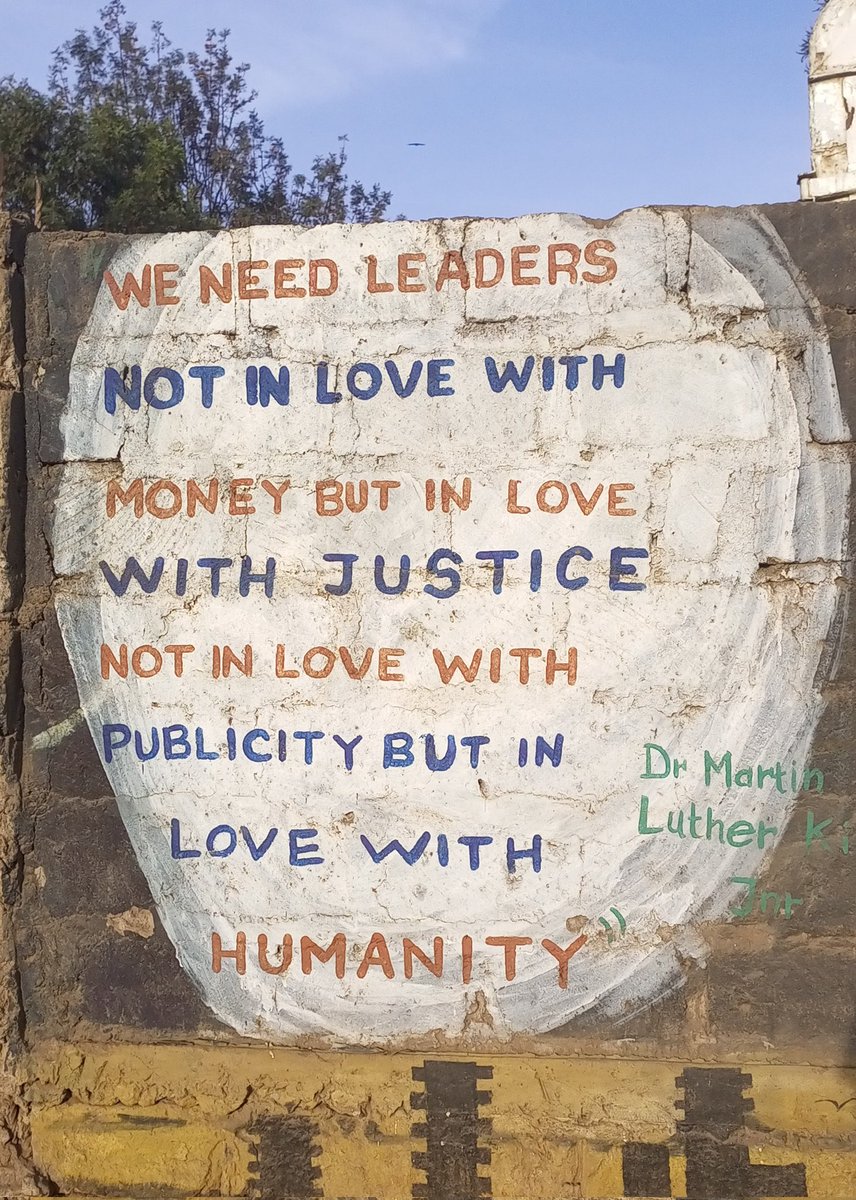 WE NEED LEADERS
NOT IN LOVE WITH
MONEY BUT IN LOVE
WITH JUSTICE
NOT IN LOVE WITH
PUBLICITY BUT IN
LOVE WITH
HUMANITY"
Dr Martin
Luther Ki
Jnr